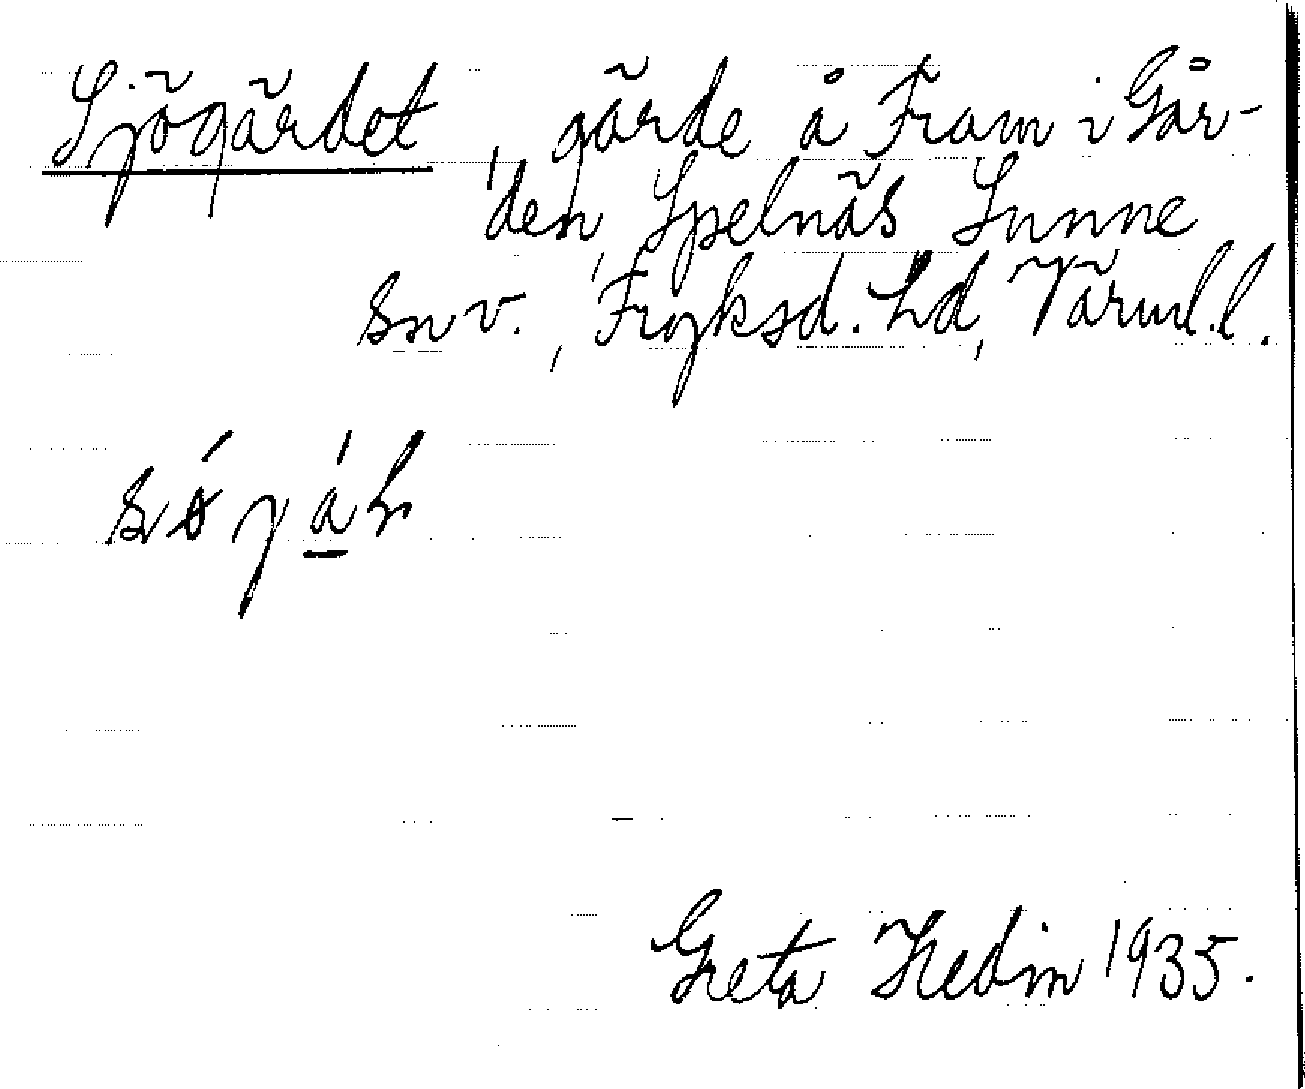 Sjögärdet, gärde å Fram i Går-
den, Spelnäs Sunne
sn v., Fryksd. hd, Värml.l.
Greta Hedin 1935.